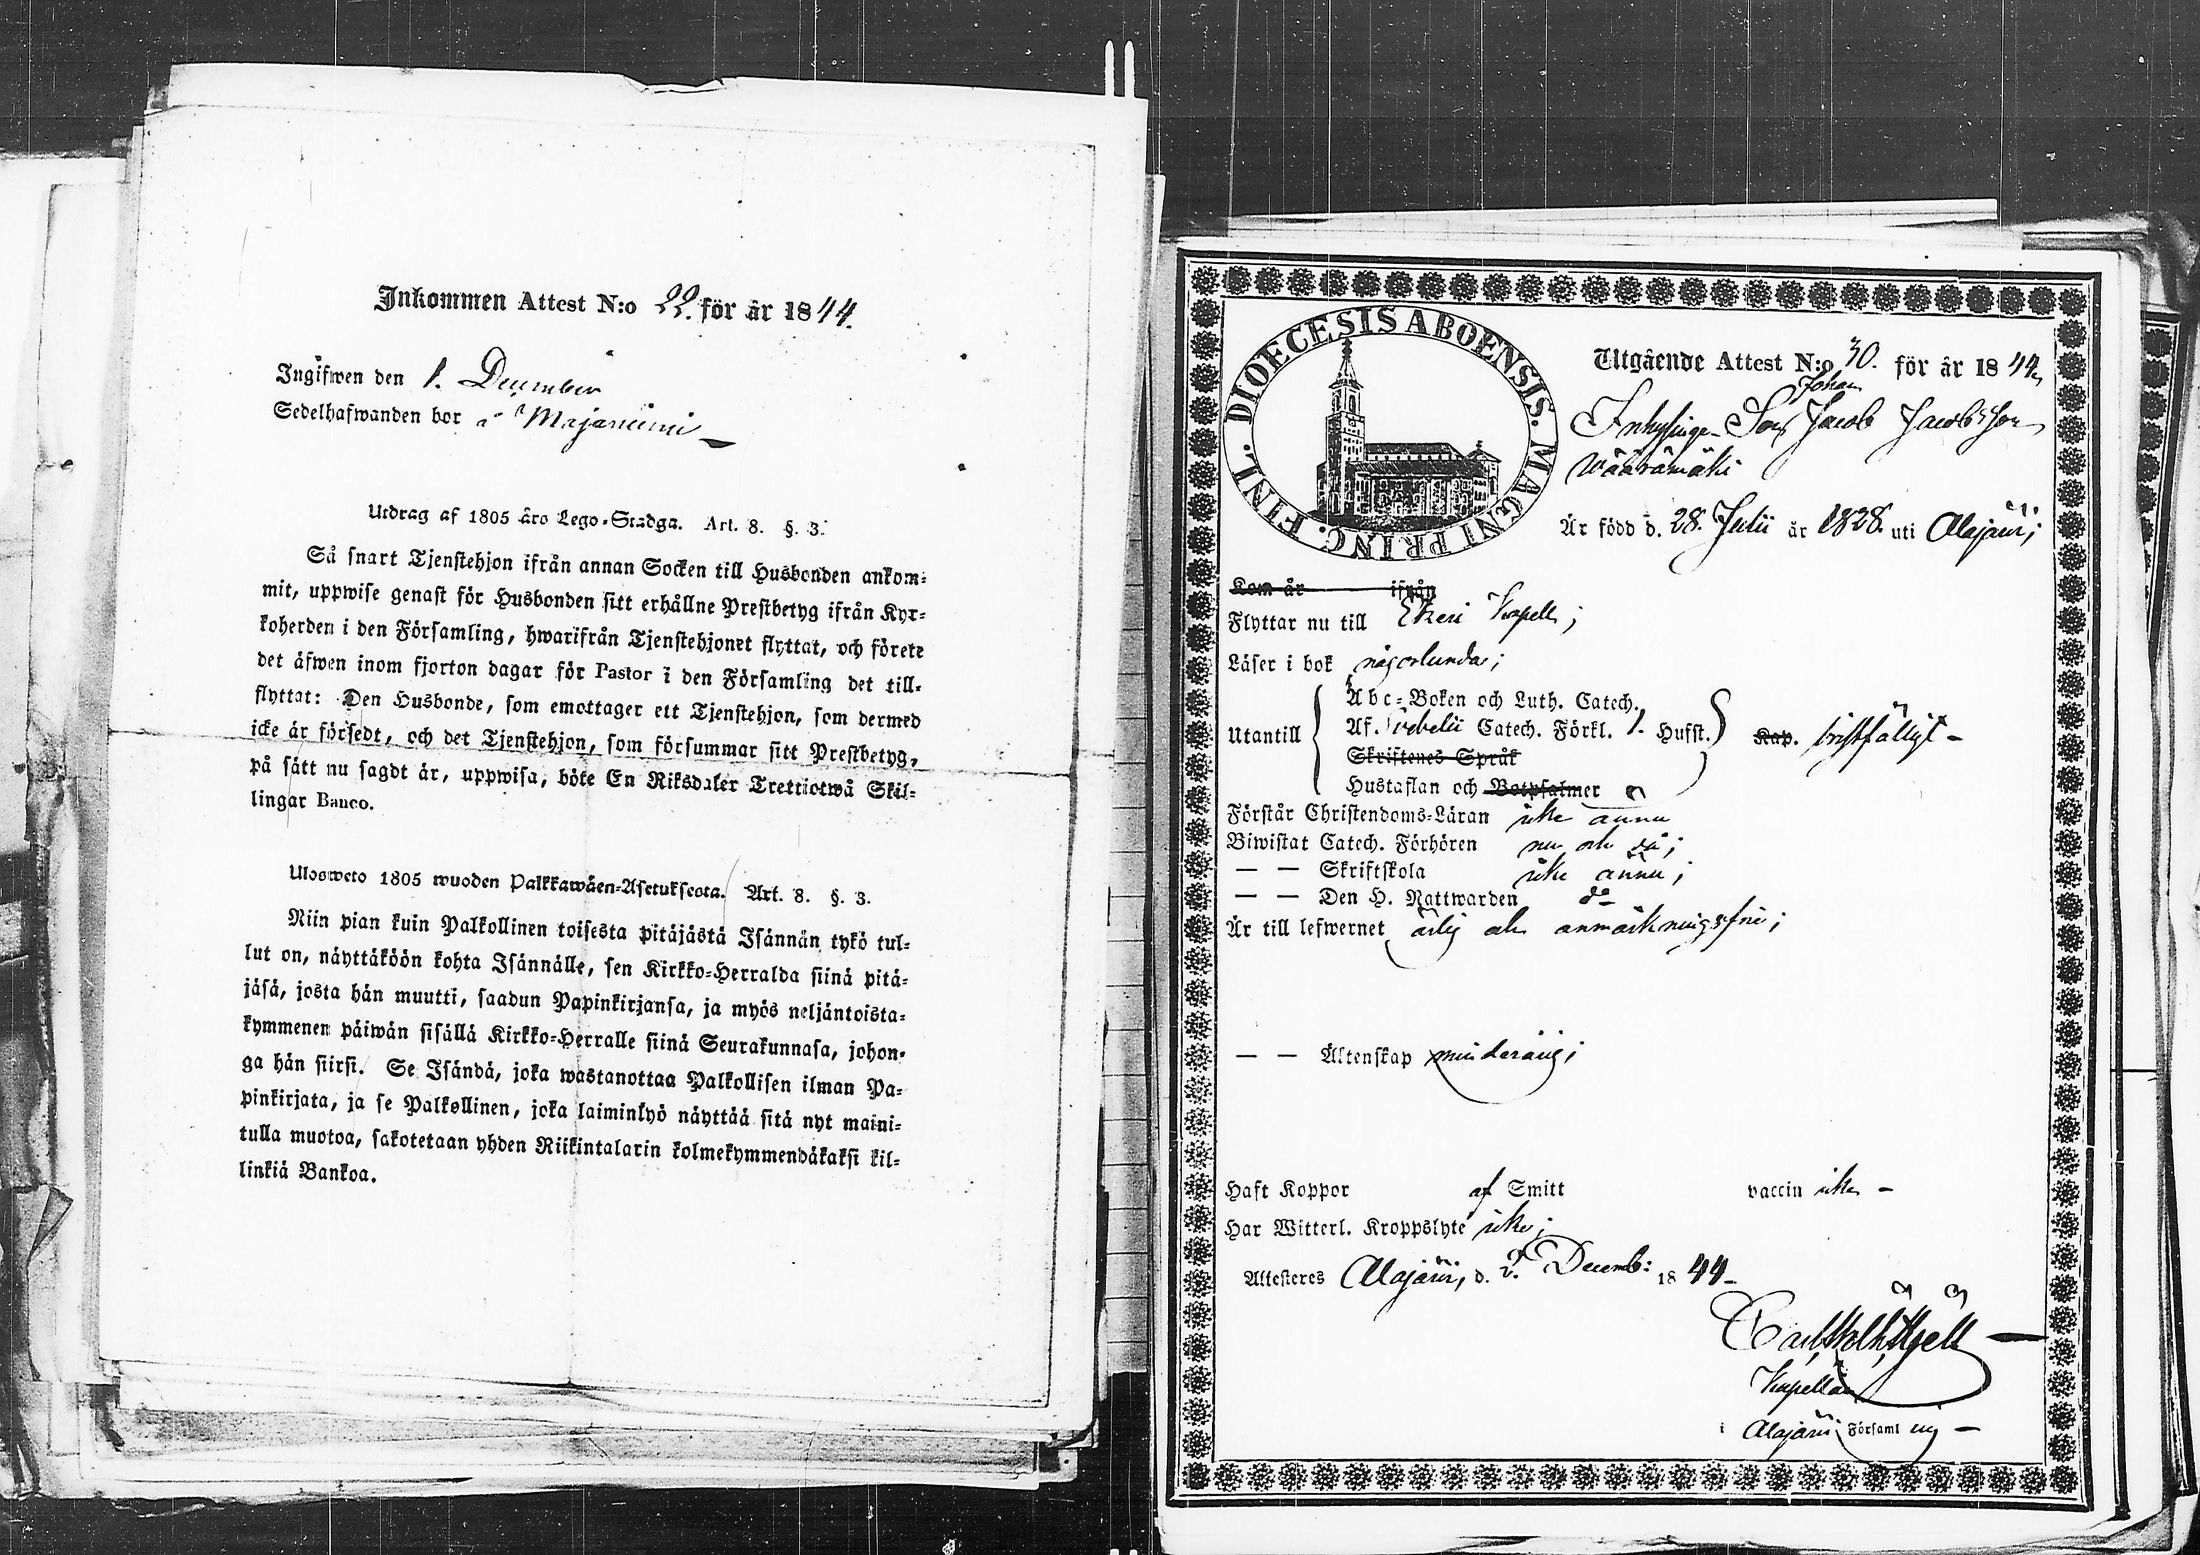 Inkommen Attest N:o 22. för år 1844.
Ingifwen den 1. December
Sedelhafwanden bor å Majaniemi
Utdrag af 1805 års Lego-Stadga. Art. 8. §. 3.
Så snart Tjenstehjon ifrån annan Socken till Husbonden ankom-
mit, uppwise genast för Husbonden sitt erhållne Prestbetyg ifrån Kyr-
koherden i den Församling, hwarifrån Tjenstehjonet flyttat, och förete
det äfwen inom fjorton dagar för Pastor i den Församling det till-
flyttat: Den Husbonde, som emottager ett Tjenstehjon, som dermed
icke är försedt, och det Tjenstehjon, som försummar sitt Prestbetyg,
på sätt nu sagdt är, uppwisa, böte En Riksdaler Trettiotwå Skil-
lingar Banco.
Ulosweto 1805 wuoden Palkkawäen-Asetuksesta. Art. 8. §. 3.
Niin pian kuin Palkollinen toisesta pitäjästä Isännän tykö tul-
lut on, näyttäköön kohta Isännälle, sen Kirkko-Herralda siinä pitä-
jäsä, josta hän muutti, saadun Papinkirjansa, ja myös neljäntoista-
kymmenen päiwän sisällä Kirkko-Herralle siinä Seurakunnasa, johon-
ga hän siirsi. Se Isändä, joka wastanottaa Palkollisen ilman Pa-
pinkirjata, ja se Palkollinen, joka laiminlyö näyttää sitä nyt maini-
tulla muotoa, sakotetaan yhden Riikintalarin kolmekymmendäkaksi kil-
linkiä Bankoa.
DIOECESIS ABOENSIS. MAGNI PRINC. FINL.
Utgående Attest N:o 30. för år 1844
Johan
Inhysinge Son Jacob Jacobsson
Wäärämäki
Är född d. 28. Julii år 1828. uti Alajärvi;
Kom år ifrån
Flyttar nu till Etseri Kapell;
Läser i bok någorlunda;
Abc-Boken och Luth. Catech.
Utantill Af. Svebelii Catech. Förkl. 1. Hufst. Kap. bristfälligt -
Skriftenes Språk
Hustaflan och Botpsalmer
Förstår Christendoms-Läran icke ännu
Biwistat Catech. Förhören nu och då;
— — Skriftskola icke ännu;
— — Den H. Nattwarden do
Är till lefwernet ärlig och anmärkningsfri;
— — Äktenskap minderårig;
Haft Koppor af Smitt vaccin icke -
Har Witterl. Kroppslyte icke;
Attesteres Alajärvi, d. 2. Decemb: 1844-
Kapellan
i Alajärvi Församling -